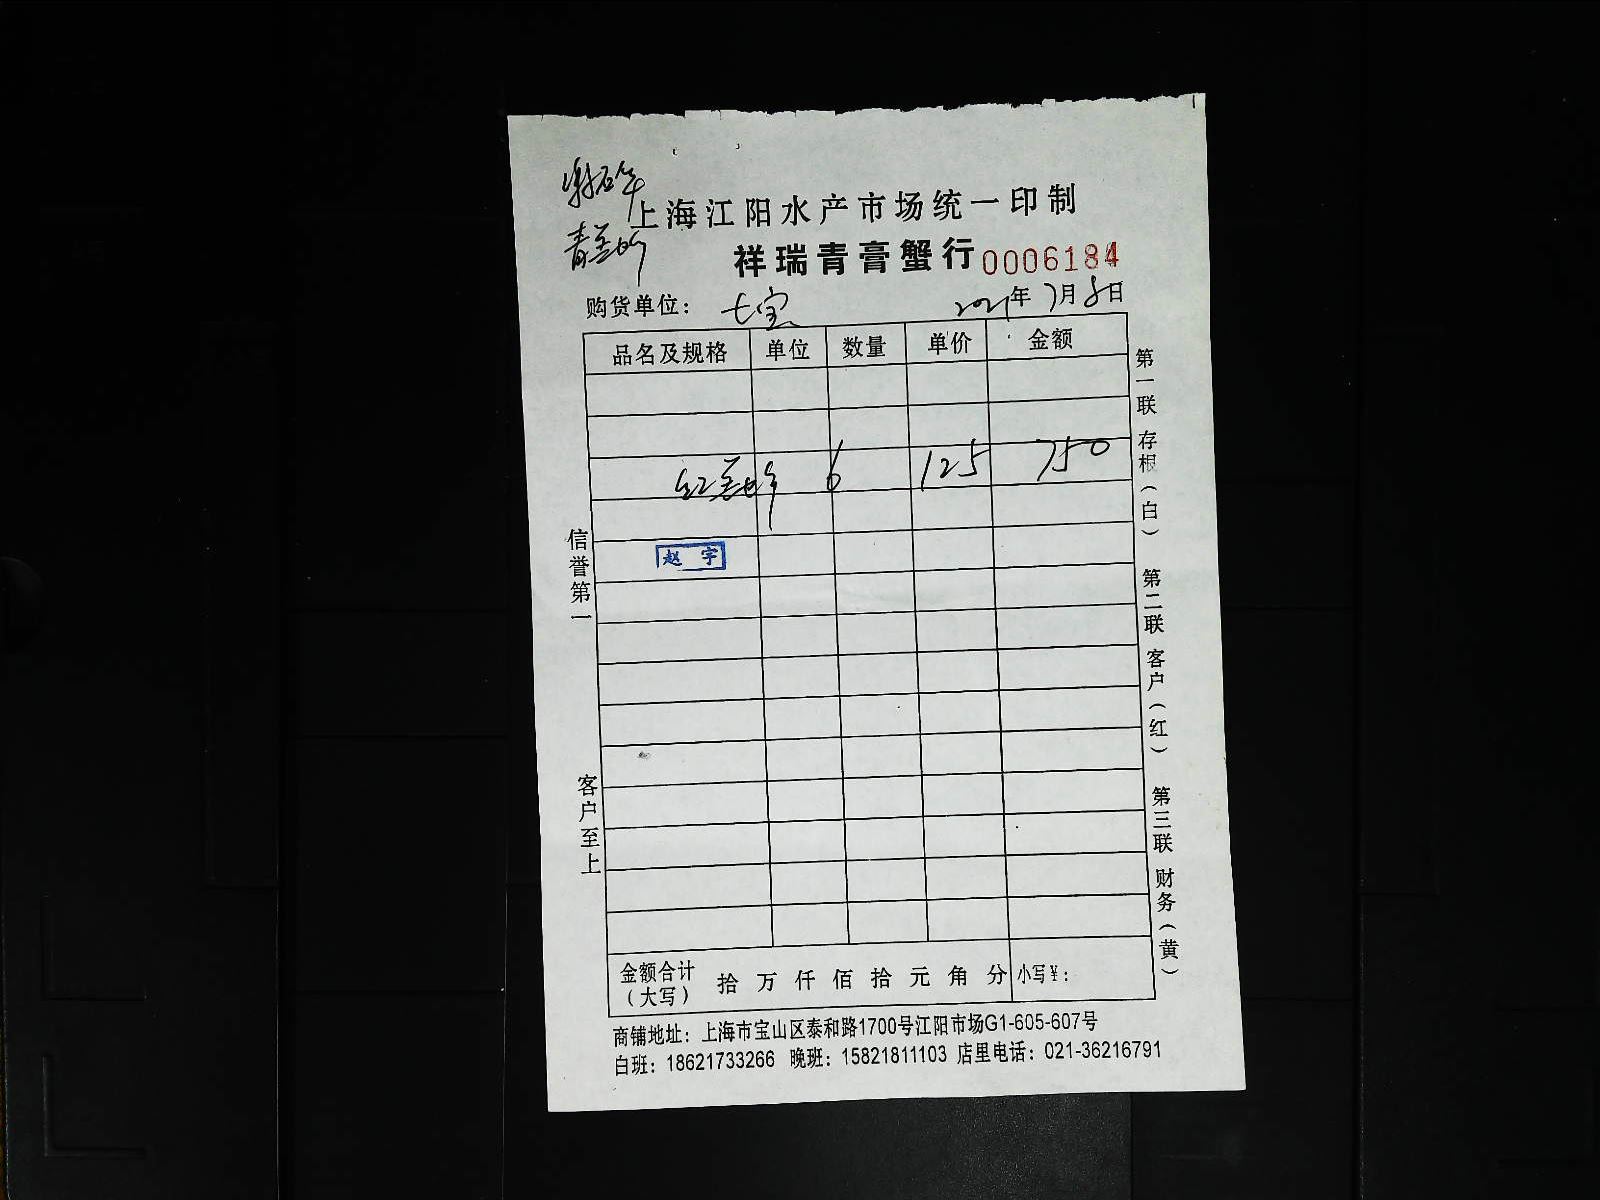 上海江阳水产市场统一印制
祥瑞青膏蟹行 0006184
购货单位： 七宝 2021年7月8日
品名及规格 单位 数量 单价 金额
6 125 750
赵宇
信誉第一
客户至上
第一联 存根（白） 第二联 客户（红） 第三联 财务（黄）
金额合计（大写） 拾 万 仟 佰 拾 元 角 分 小写￥：
商铺地址：上海市宝山区泰和路1700号江阳市场G1-605-607号
白班：18621733266 晚班：15821811103 店里电话：021-36216791